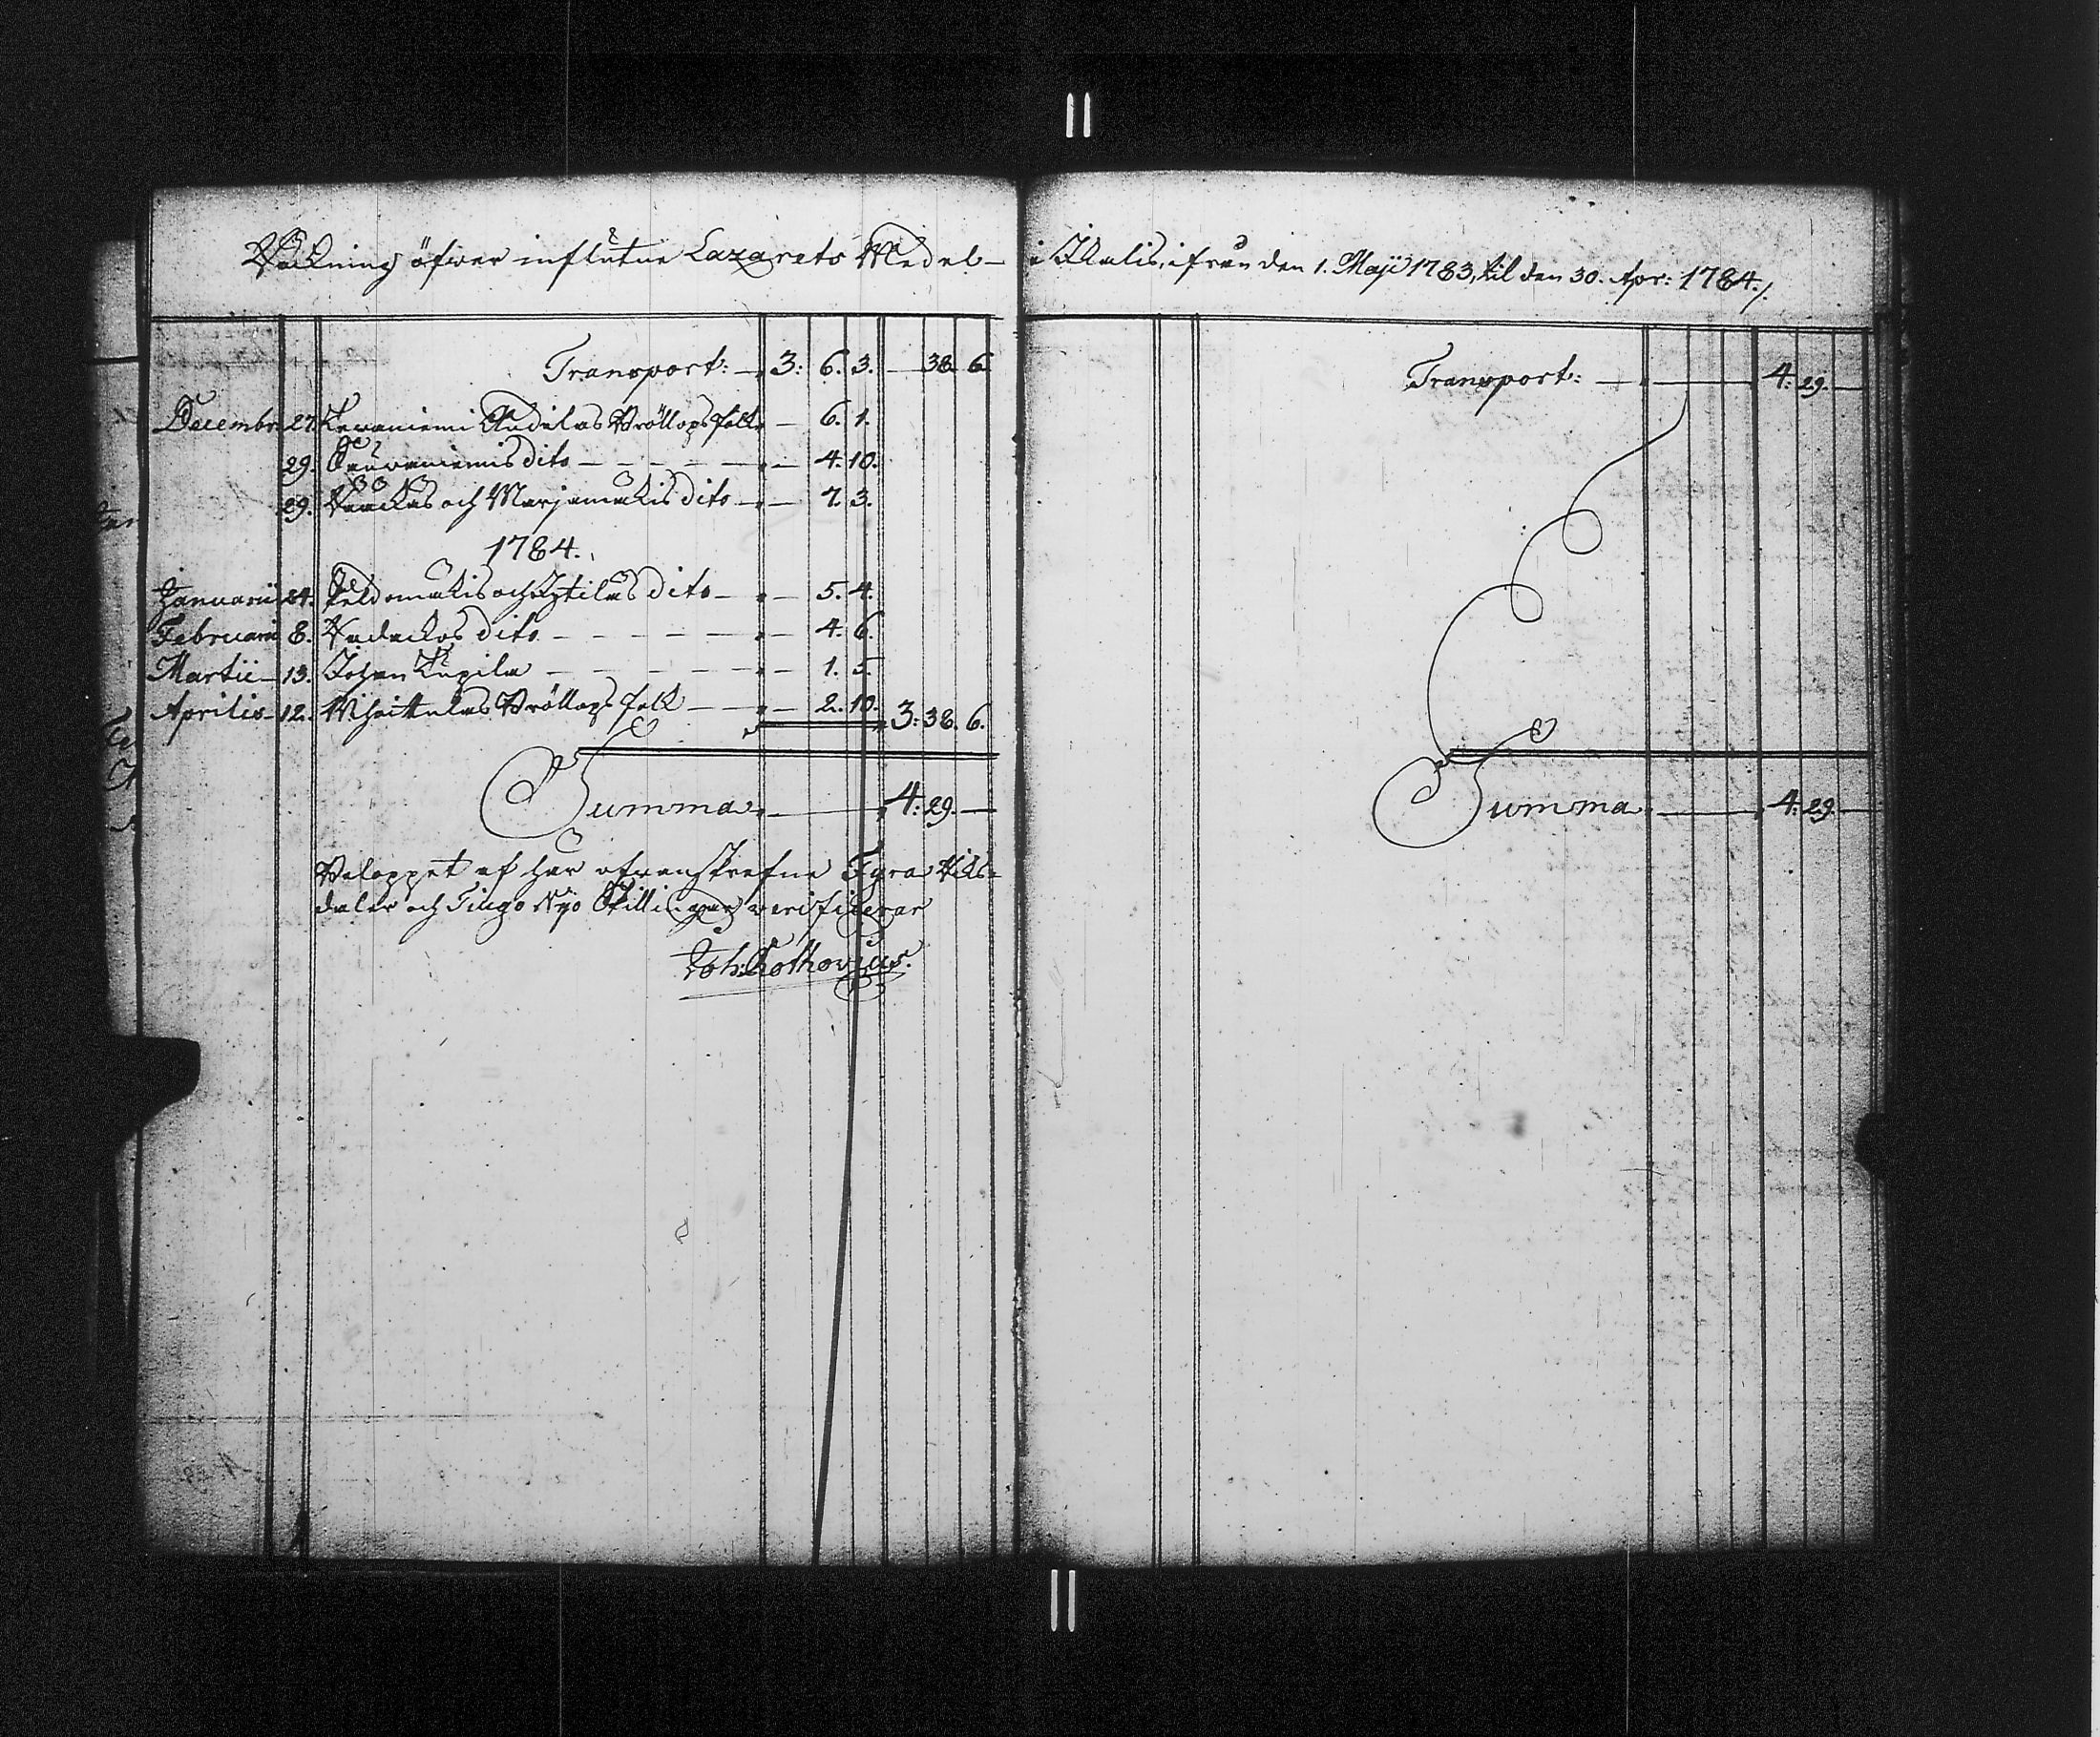 Räkning öfwer influtne Lazarets Medel
Transport: 3: 6. 3. 38 6
Decembr 27. Kevaniemi Bröllops folk 6. 1.
29. dito 4. 10.
29. och Marjamäkis dito 7. 3.
1784.
Januarii 24. och dito 5. 4.
Februarii 8. dito 4. 6.
Martii 13. Johan Kupila 1. 5.
Aprilis 12. Bröllops folk 2. 10. 3: 38. 6.
Summa 4: 29.
Beloppet af här ofvanskrefne Fyra Riks-
daler och Tiugo Nijo Skillingar verificerar
Joh: Rothovius.
i Ikalis, ifrån den 1. Maji 1783, til den 30. Apr: 1784./.
Transport: 4: 29.
Summa 4: 29.